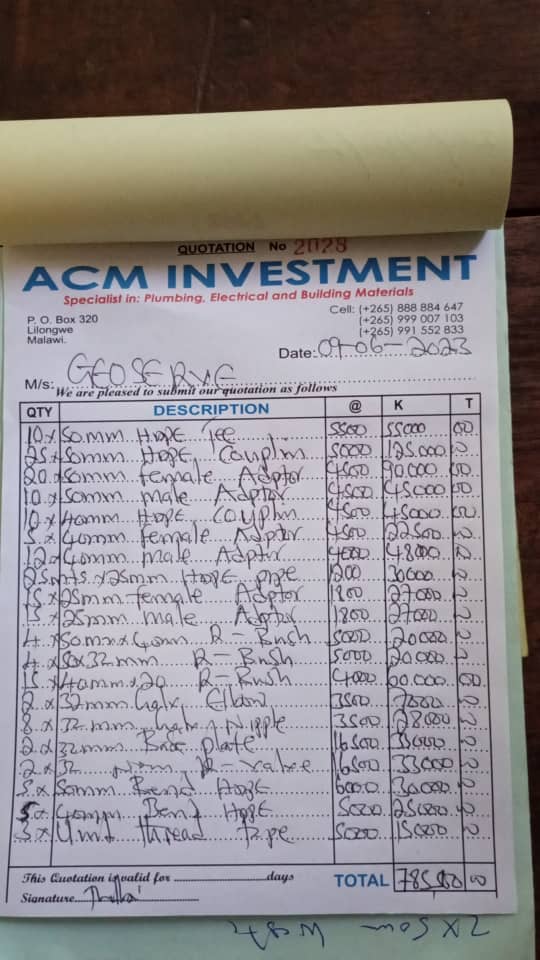 QUOTATION No 2028
ACM INVESTMENT
Specialist in: Plumbing, Electrical and Building Materials
P. O. Box 320
Lilongwe
Malawi.
Cell: (+265) 888 884 647
(+265) 999 007 103
(+265) 991 552 833
Date: 09-06-2023
M/s: GEOSERVE
We are pleased to submit our quotation as follows
QTY DESCRIPTION @ K T
10 x 50mm HDPE Tee 5500 55000 00
25 x 50mm HDPE Couplin 5000 125.000 00
20 x 50mm female Adptor 4500 90.000 00
10 x 50mm male Adptor 4500 45000 00
10 x 40mm HDPE Couplin 4500 45000 00
5 x 40mm female Adptor 4500 22500 00
12 x 40mm male Adptor 4000 48000 00
25mts x 25mm HDPE pipe 1200 30000 00
15 x 25mm female Adptor 1800 27000 00
15 x 25mm male Adptor 1800 27000 00
4 x 50mm x 40mm R-Bush 5000 20000 00
4 x 50x32mm R-Bush 5000 20.000 00
15 x 40mm x 20 R-Bush 4000 60.000 00
2 x 32mm Galv Elbow 3500 7000 00
8 x 32mm Galv Nipple 3500 28000 00
2 x 32mm Base plate 16500 33000 00
2 x 32 R-valve 16500 33000 00
5 x 50mm Bend HDPE 6000 30.000 00
5 x 40mm Bend HDPE 5000 25000 00
3 x thread Tape 5000 15000 00
This Quotation is valid for days
TOTAL 785,500 00
Signature
2 x 50m